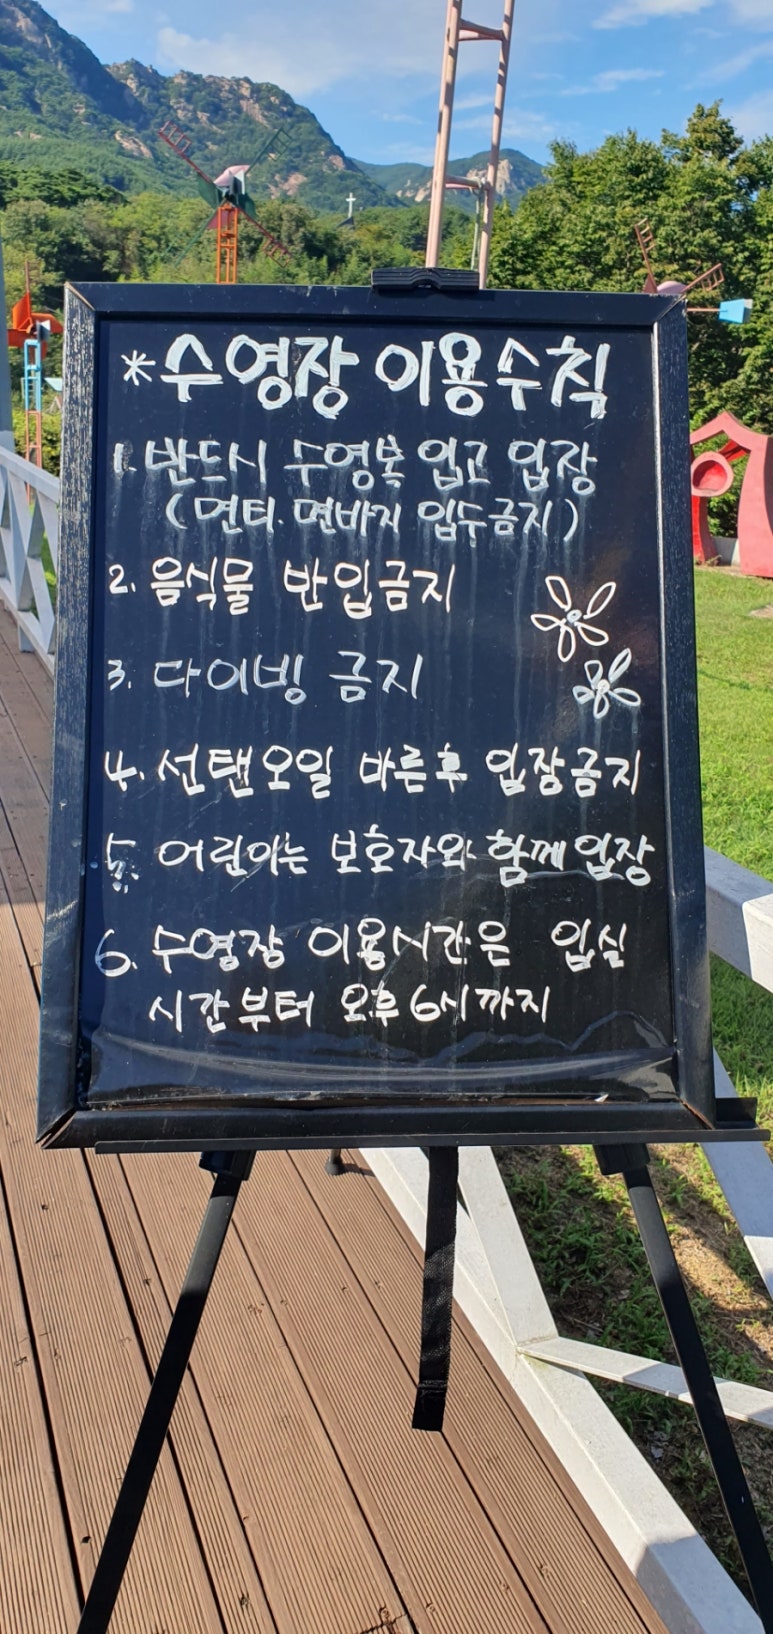 *수영장 이용수칙
1. 반드시 수영복 입고 입장
(면티. 면바지 입수금지)
2. 음식물 반입금지
3. 다이빙 금지
4. 선탠오일 바른후 입장금지
5. 어린아는 보호자와 함께 입장
6. 수영장 이용시간은 입실
시간부터 오후 6시까지